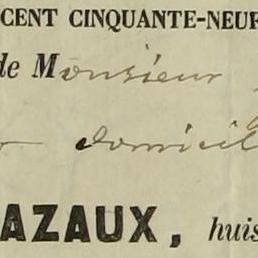 CENT CINQUANTE-NEUF
de Monsieur
domicil
AZAUX, huis